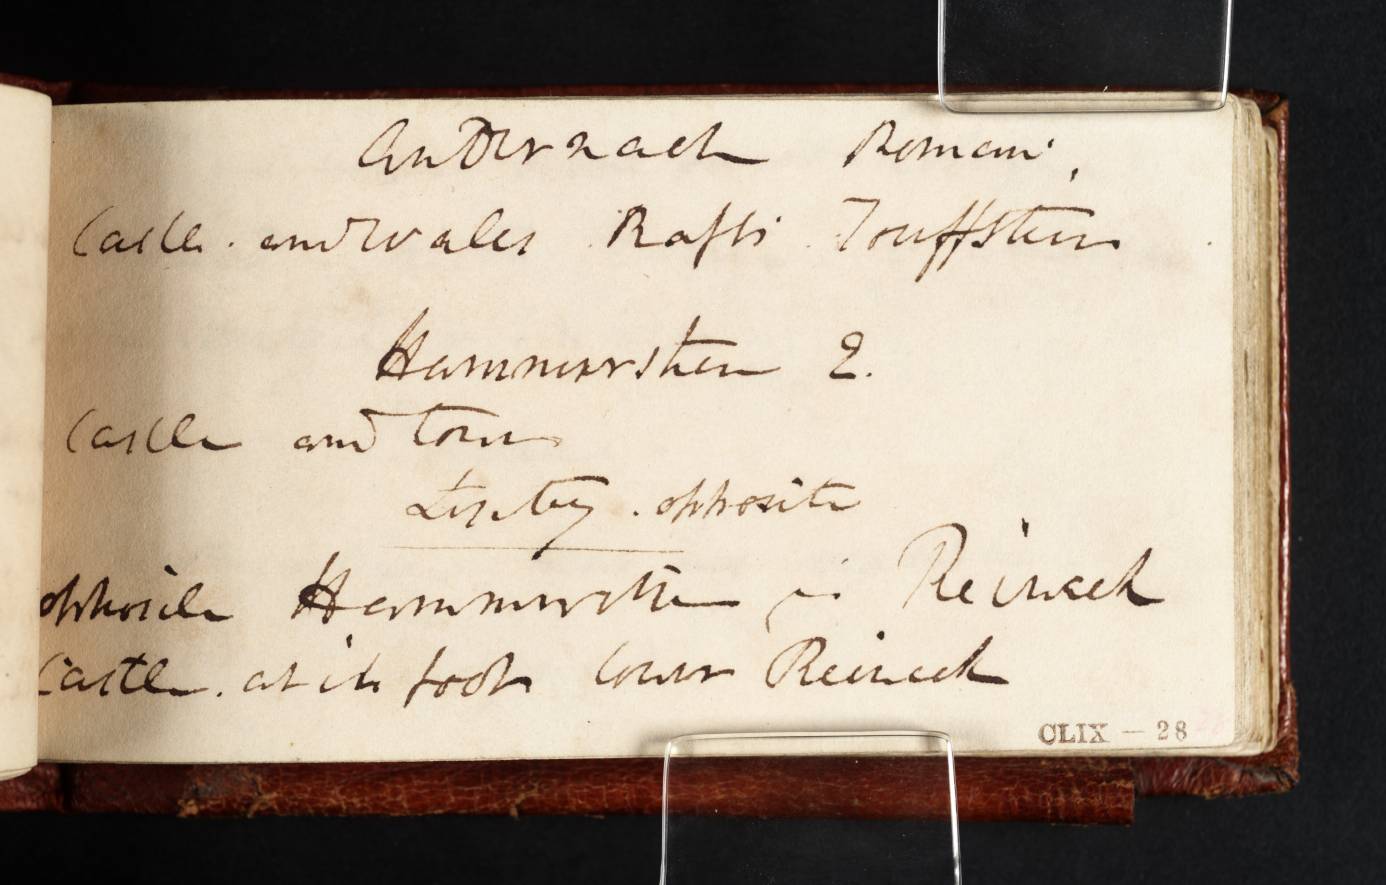 Andernach Roman
Castle. and Wales Rafts Touffstein
Hammerstein 2.
Castle and Town
opposite
opposite Hammerstein is Reineck
Castle. at its foot lower Reineck
CLIX — 28